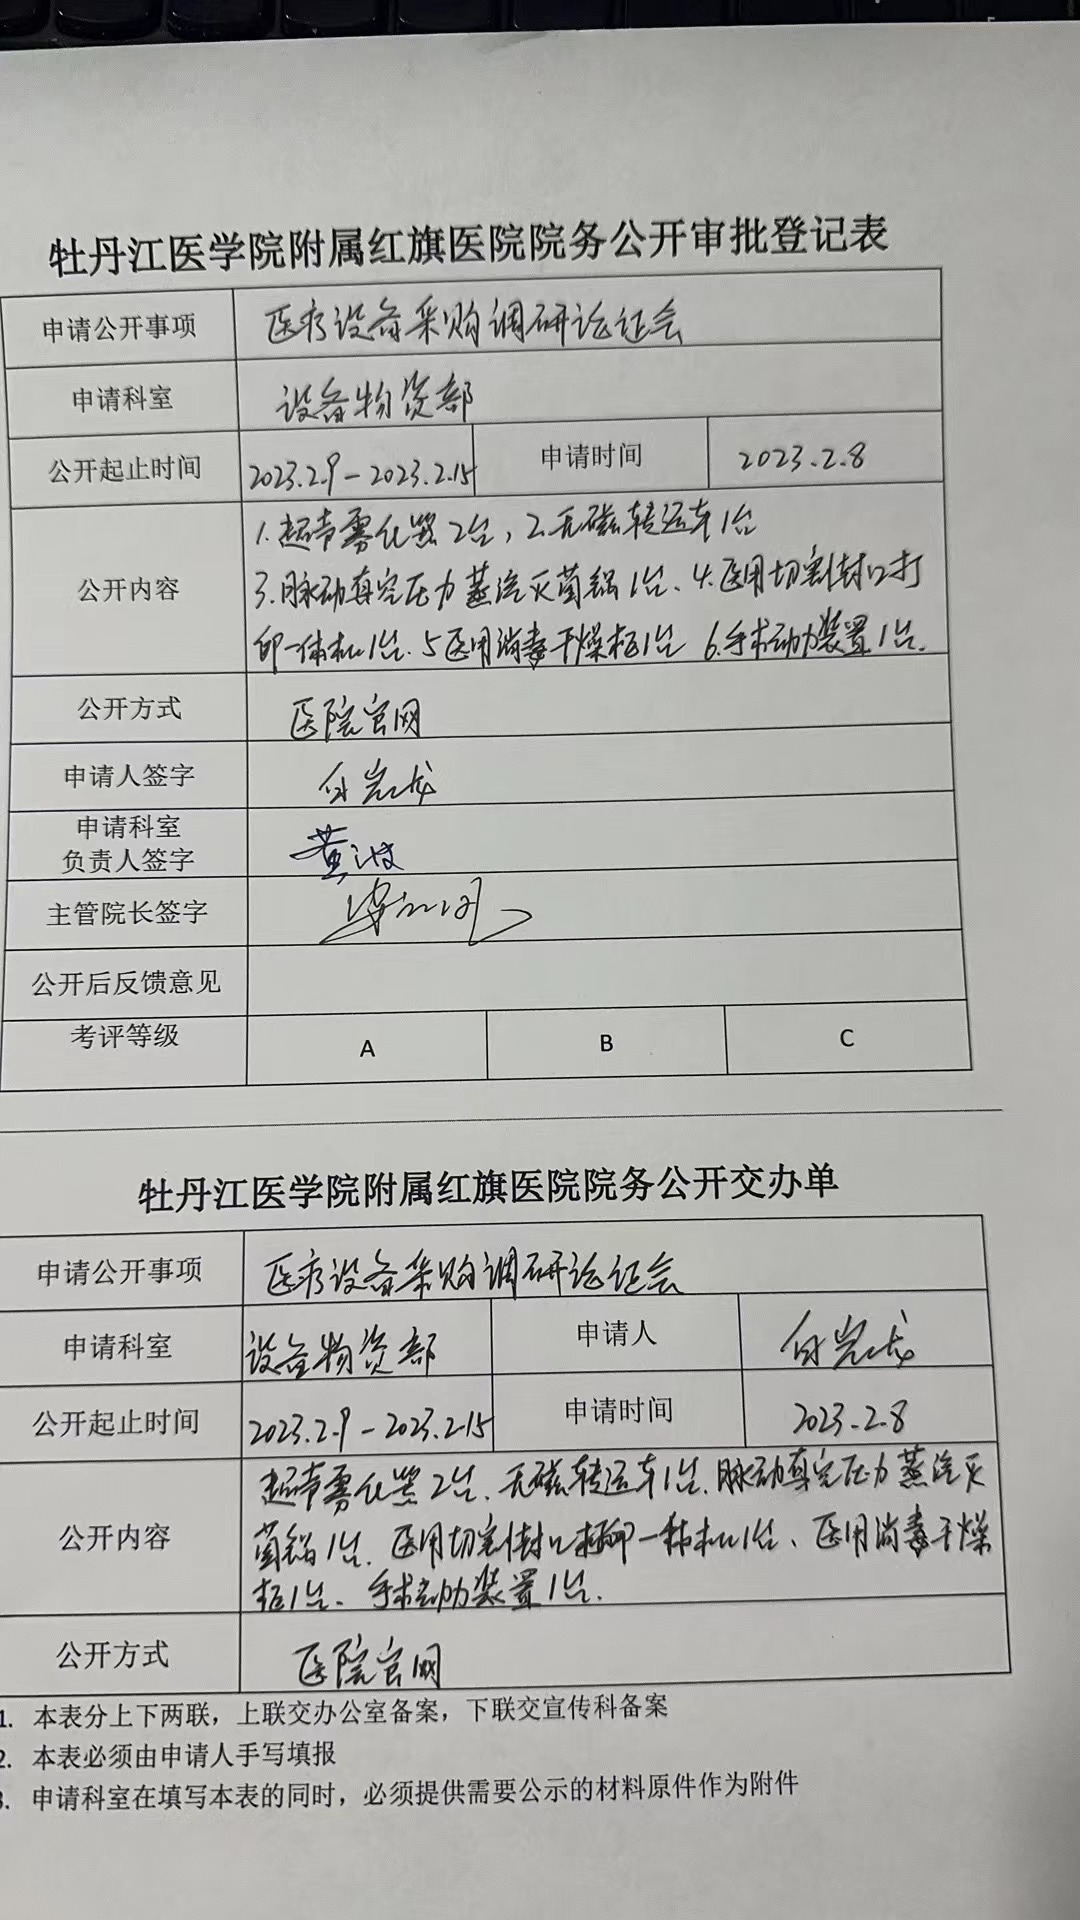 牡丹江医学院附属红旗医院院务公开审批登记表
申请公开事项 医疗设备采购调研论证会
申请科室 设备物资部
公开起止时间 2023.2.9-2023.2.15 申请时间 2023.2.8
1.超声雾化器2台，2.无磁转运车1台
公开内容 3.脉动真空压力蒸汽灭菌锅1台、4.医用切割封口打
印一体机1台.5医用消毒干燥柜1台 6.手术动力装置1台.
公开方式 医院官网
申请人签字
申请科室
负责人签字 黄波
主管院长签字
公开后反馈意见
考评等级 A B C
牡丹江医学院附属红旗医院院务公开交办单
申请公开事项 医疗设备采购调研论证会
申请科室 设备物资部 申请人
公开起止时间 2023.2.9-2023.2.15 申请时间 2023.2.8
超声雾化器2台、无磁转运车1台.脉动真空压力蒸汽灭
公开内容 菌锅1台.医用切割封口打印一体机1台、医用消毒干燥
柜1台、手术动力装置1台.
公开方式 医院官网
1. 本表分上下两联，上联交办公室备案，下联交宣传科备案
2. 本表必须由申请人手写填报
3. 申请科室在填写本表的同时，必须提供需要公示的材料原件作为附件